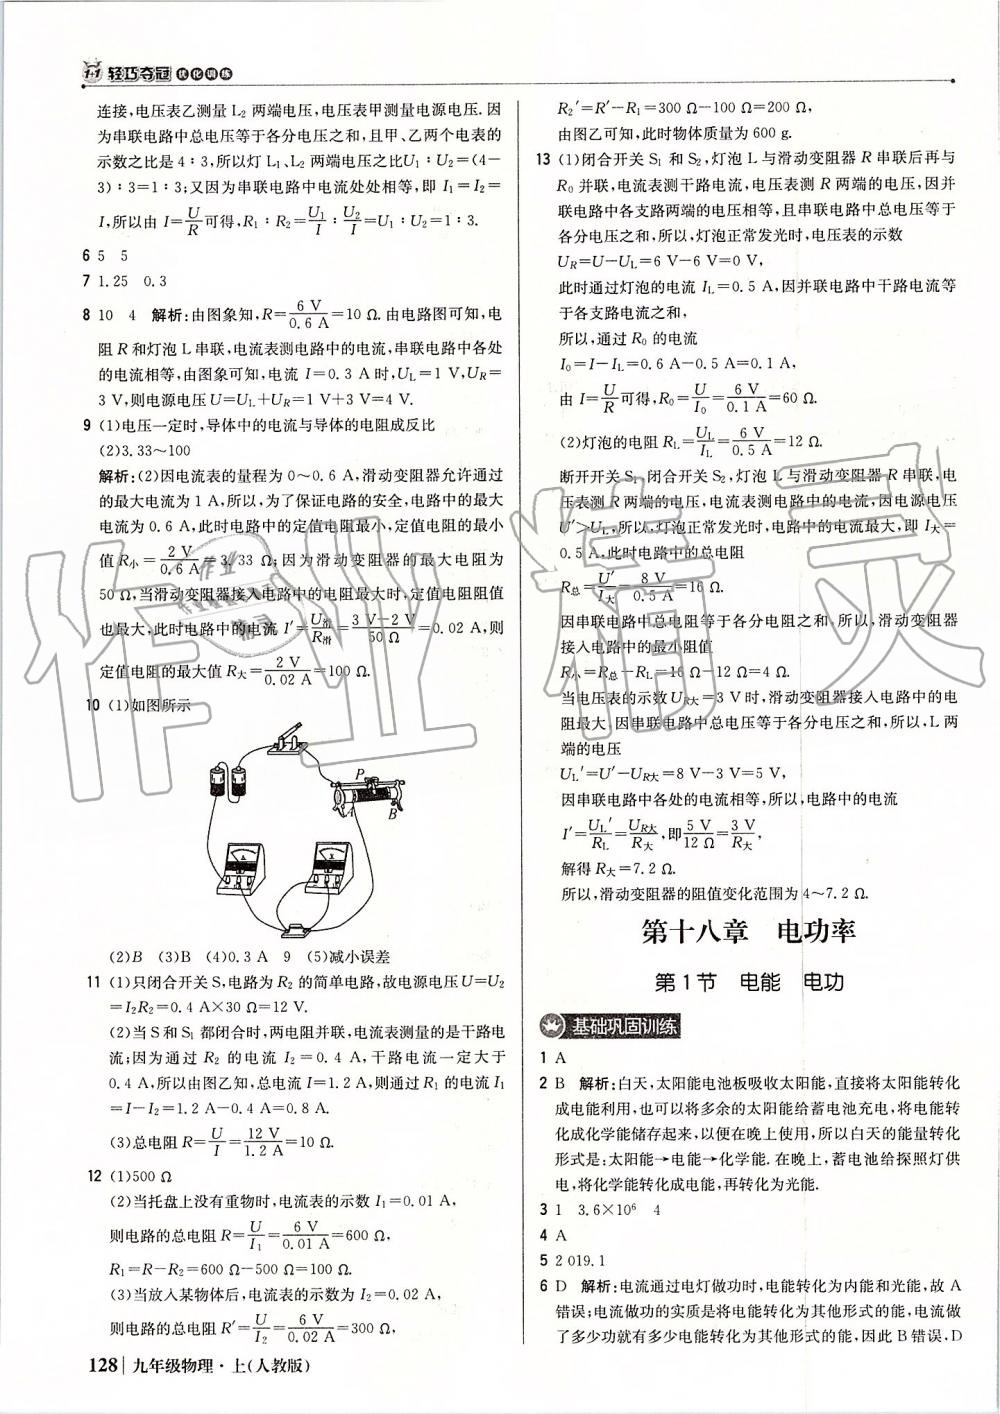 1+1 轻巧夺冠 优化训练
连接,电压表乙测量 L₂ 两端电压,电压表甲测量电源电压. 因
为串联电路中总电压等于各分电压之和,且甲、乙两个电表的
示数之比是 4∶3,所以灯 L₁、L₂ 两端电压之比U₁∶U₂=(4-
3)∶3=1∶3;又因为串联电路中电流处处相等,即 I₁=I₂=
I,所以由 I=U/R可得,R₁∶R₂=U₁/I∶U₂/I=U₁∶U₂=1∶3.
6 5 5
7 1.25 0.3
8 10 4 解析:由图象知,R=6 V/0.6 A=10 Ω. 由电路图可知,电
阻 R 和灯泡 L 串联,电流表测电路中的电流,串联电路中各处
的电流相等,由图象可知,电流 I=0.3 A 时,U_L=1 V,U_R=
3 V,则电源电压 U=U_L+U_R=1 V+3 V=4 V.
9 (1)电压一定时,导体中的电流与导体的电阻成反比
(2)3.33~100
解析:(2)因电流表的量程为 0~0.6 A,滑动变阻器允许通过
的最大电流为 1 A,所以,为了保证电路的安全,电路中的最大
电流为 0.6 A,此时电路中的定值电阻最小,定值电阻的最小
值 R小=2 V/0.6 A≈3.33 Ω;因为滑动变阻器的最大电阻为
50 Ω,当滑动变阻器接入电路中的电阻最大时,定值电阻阻值
也最大,此时电路中的电流 I′=U滑/R滑=3 V-2 V/50 Ω=0.02 A,则
定值电阻的最大值 R大=2 V/0.02 A=100 Ω.
10 (1)如图所示
P
A
B
A
V
(2)B (3)B (4)0.3 A 9 (5)减小误差
11 (1)只闭合开关 S,电路为 R₂ 的简单电路,故电源电压 U=U₂
=I₂R₂=0.4 A×30 Ω=12 V.
(2)当 S 和 S₁ 都闭合时,两电阻并联,电流表测量的是干路电
流;因为通过 R₂ 的电流 I₂=0.4 A,干路电流一定大于
0.4 A,所以由图乙知,总电流 I=1.2 A,则通过 R₁ 的电流 I₁
=I-I₂=1.2 A-0.4 A=0.8 A.
(3)总电阻 R=U/I=12 V/1.2 A=10 Ω.
12 (1)500 Ω
(2)当托盘上没有重物时,电流表的示数 I₁=0.01 A,
则电路的总电阻 R=U/I₁=6 V/0.01 A=600 Ω,
R₁=R-R₂=600 Ω-500 Ω=100 Ω.
(3)当放入某物体后,电流表的示数为 I₂=0.02 A,
则电路的总电阻 R′=U/I₂=6 V/0.02 A=300 Ω,
R₂′=R′-R₁=300 Ω-100 Ω=200 Ω,
由图乙可知,此时物体质量为 600 g.
13 (1)闭合开关 S₁ 和 S₂,灯泡 L 与滑动变阻器 R 串联后再与
R₀ 并联,电流表测干路电流,电压表测 R 两端的电压,因并
联电路中各支路两端的电压相等,且串联电路中总电压等于
各分电压之和,所以,灯泡正常发光时,电压表的示数
U_R=U-U_L=6 V-6 V=0 V,
此时通过灯泡的电流 I_L=0.5 A,因并联电路中干路电流等
于各支路电流之和,
所以,通过 R₀ 的电流
I₀=I-I_L=0.6 A-0.5 A=0.1 A,
由 I=U/R可得,R₀=U/I₀=6 V/0.1 A=60 Ω.
(2)灯泡的电阻 R_L=U_L/I_L=6 V/0.5 A=12 Ω.
断开开关 S₁、闭合开关 S₂,灯泡 L 与滑动变阻器 R 串联,电
压表测 R 两端的电压,电流表测电路中的电流,因电源电压
U′>U_L,所以,灯泡正常发光时,电路中的电流最大,即 I大=
0.5 A,此时电路中的总电阻
R总=U′/I大=8 V/0.5 A=16 Ω,
因串联电路中总电阻等于各分电阻之和,所以,滑动变阻器
接入电路中的最小阻值
R小=R总-R_L=16 Ω-12 Ω=4 Ω.
当电压表的示数 U_R大=3 V 时,滑动变阻器接入电路中的电
阻最大,因串联电路中总电压等于各分电压之和,所以,L 两
端的电压
U_L′=U′-U_R大=8 V-3 V=5 V,
因串联电路中各处的电流相等,所以,电路中的电流
I′=U_L′/R_L=U_R大/R大,即5 V/12 Ω=3 V/R大,
解得 R大=7.2 Ω.
所以,滑动变阻器的阻值变化范围为 4~7.2 Ω.
第十八章 电功率
第1节 电能 电功
基础巩固训练
1 A
2 B 解析:白天,太阳能电池板吸收太阳能,直接将太阳能转化
成电能利用,也可以将多余的太阳能给蓄电池充电,将电能转
化成化学能储存起来,以便在晚上使用,所以白天的能量转化
形式是:太阳能→电能→化学能. 在晚上,蓄电池给探照灯供
电,将化学能转化成电能,再转化为光能.
3 1 3.6×10⁶ 4
4 A
5 2 019.1
6 D 解析:电流通过电灯做功时,电能转化为内能和光能,故 A
错误;电流做功的实质是将电能转化为其他形式的能,电流做
了多少功就有多少电能转化为其他形式的能,因此 B 错误,D
128 九年级物理·上(人教版)
作业精灵